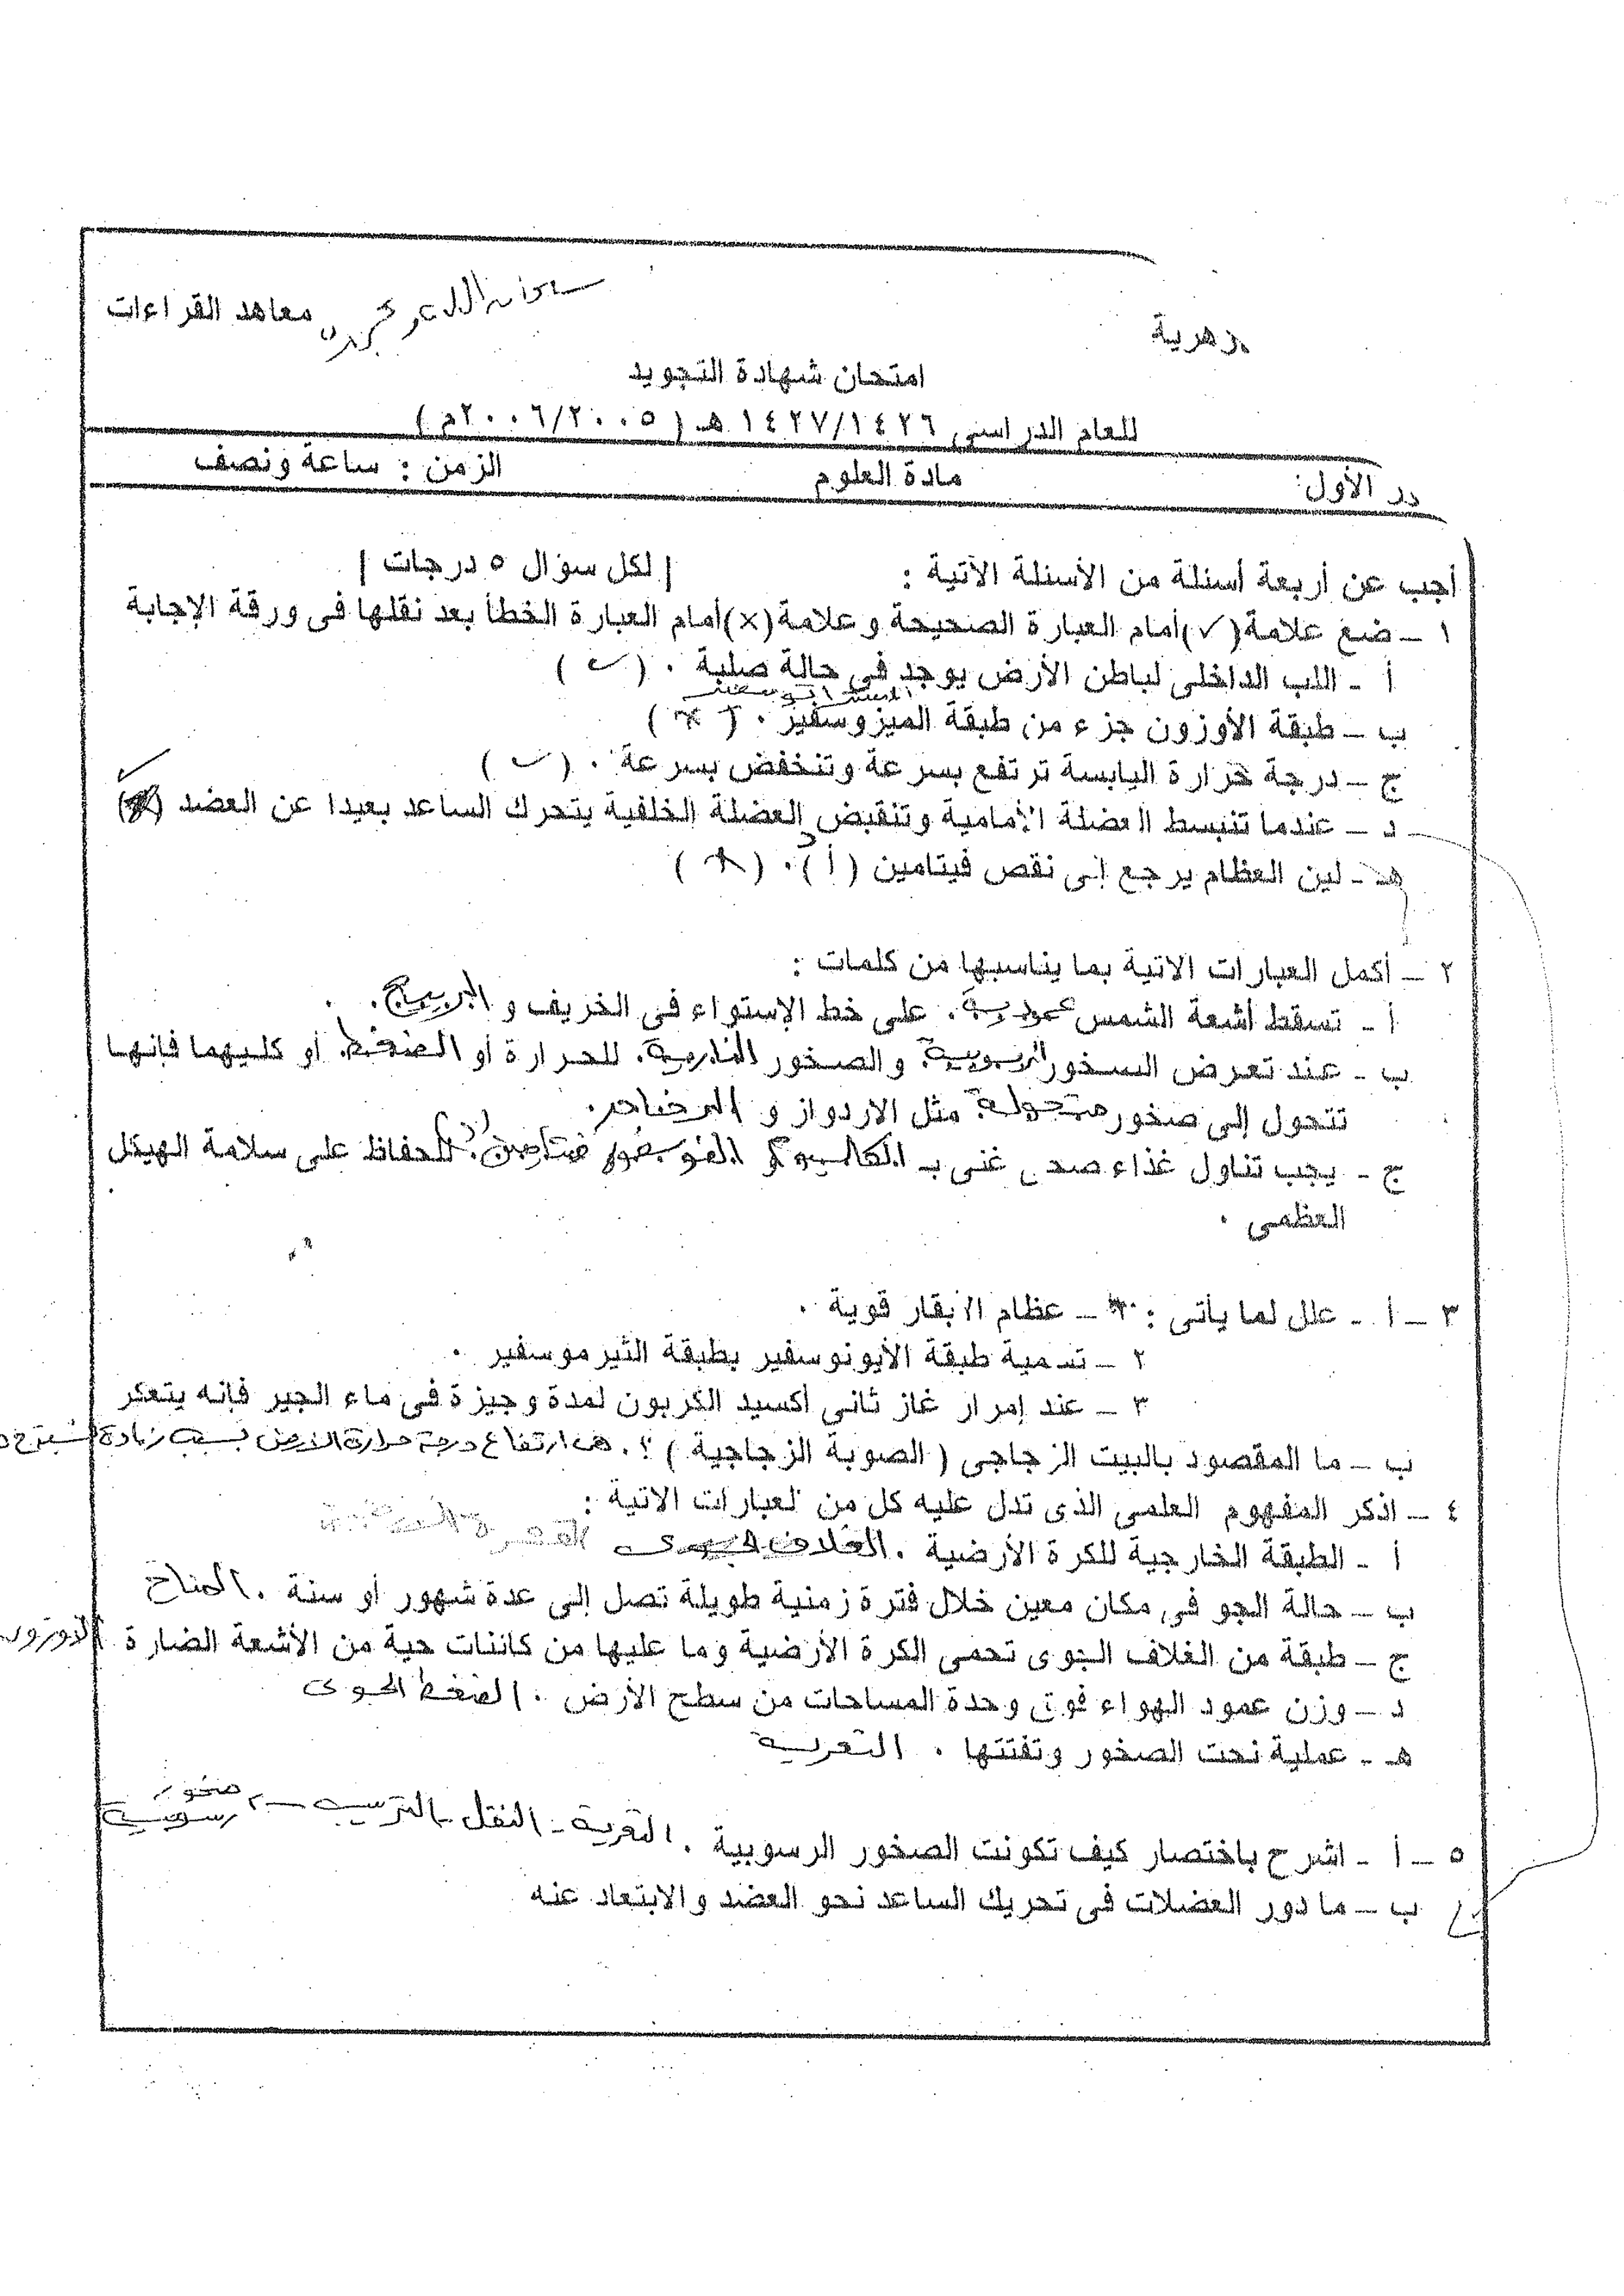 سبحان الله وبحمده معاهد القراءات
زهرية
امتحان شهادة التجويد
للعام الدراسى ١٤٢٧/١٤٢٦ هـ ( ٢٠٠٦/٢٠٠٥م )
در الأول: مادة العلوم الزمن : ساعة ونصف
أجب عن أربعة أسئلة من الأسئلة الآتية : | لكل سؤال ٥ درجات |
١ – ضع علامة(√)أمام العبارة الصحيحة وعلامة(×)أمام العبارة الخطأ بعد نقلها فى ورقة الإجابة
أ - اللب الداخلى لباطن الأرض يوجد فى حالة صلبة . ( ✓ )
الستراتوسفير
ب – طبقة الأوزون جزء من طبقة الميزوسفير . ( × )
ج – درجة حرارة اليابسة ترتفع بسرعة وتنخفض بسرعة . ( ✓ )
د – عندما تنبسط العضلة الأمامية وتنقبض العضلة الخلفية يتحرك الساعد بعيدا عن العضد ( ) ✓
هـ - لين العظام يرجع إلى نقص فيتامين ( أ ) . ( × )
٢ – أكمل العبارات الاتية بما يناسبها من كلمات :
أ - تسقط أشعة الشمس عمودية . على خط الإستواء فى الخريف و الربيع . .
ب - عند تعرض الصخور الرسوبية . والصخور النارية . للحرارة أو الضغط . أو كليهما فإنها
تتحول إلى صخور متحولة . مثل الاردواز و الرخام .
ج - يجب تناول غذاء صحى غنى بـ الكالسيوم و الفوسفور فيتامين (د) للحفاظ على سلامة الهيكل
العظمى .
٣ – أ - علل لما يأتى : – عظام الأبقار قوية .
٢ – تسمية طبقة الأيونوسفير بطبقة الثيرموسفير .
٣ – عند إمرار غاز ثانى أكسيد الكربون لمدة وجيزة فى ماء الجير فإنه يتعكر
ب – ما المقصود بالبيت الزجاجى ( الصوبة الزجاجية ) ؟ . هى ارتفاع درجة حرارة الأرض بسبب زيادة
٤ – اذكر المفهوم العلمى الذى تدل عليه كل من العبارات الاتية :
أ - الطبقة الخارجية للكرة الأرضية . الغلاف الجوى القشرة
ب – حالة الجو فى مكان معين خلال فترة زمنية طويلة تصل إلى عدة شهور أو سنة . المناخ
ج – طبقة من الغلاف الجوى تحمى الكرة الأرضية وما عليها من كائنات حية من الأشعة الضارة الاوزون
د – وزن عمود الهواء فوق وحدة المساحات من سطح الأرض . الضغط الجوى
هـ - عملية نحت الصخور وتفتتها . التعرية
٥ – أ - اشرح باختصار كيف تكونت الصخور الرسوبية . التعرية - النقل - الترسيب صخور رسوبية
ب – ما دور العضلات فى تحريك الساعد نحو العضد والابتعاد عنه